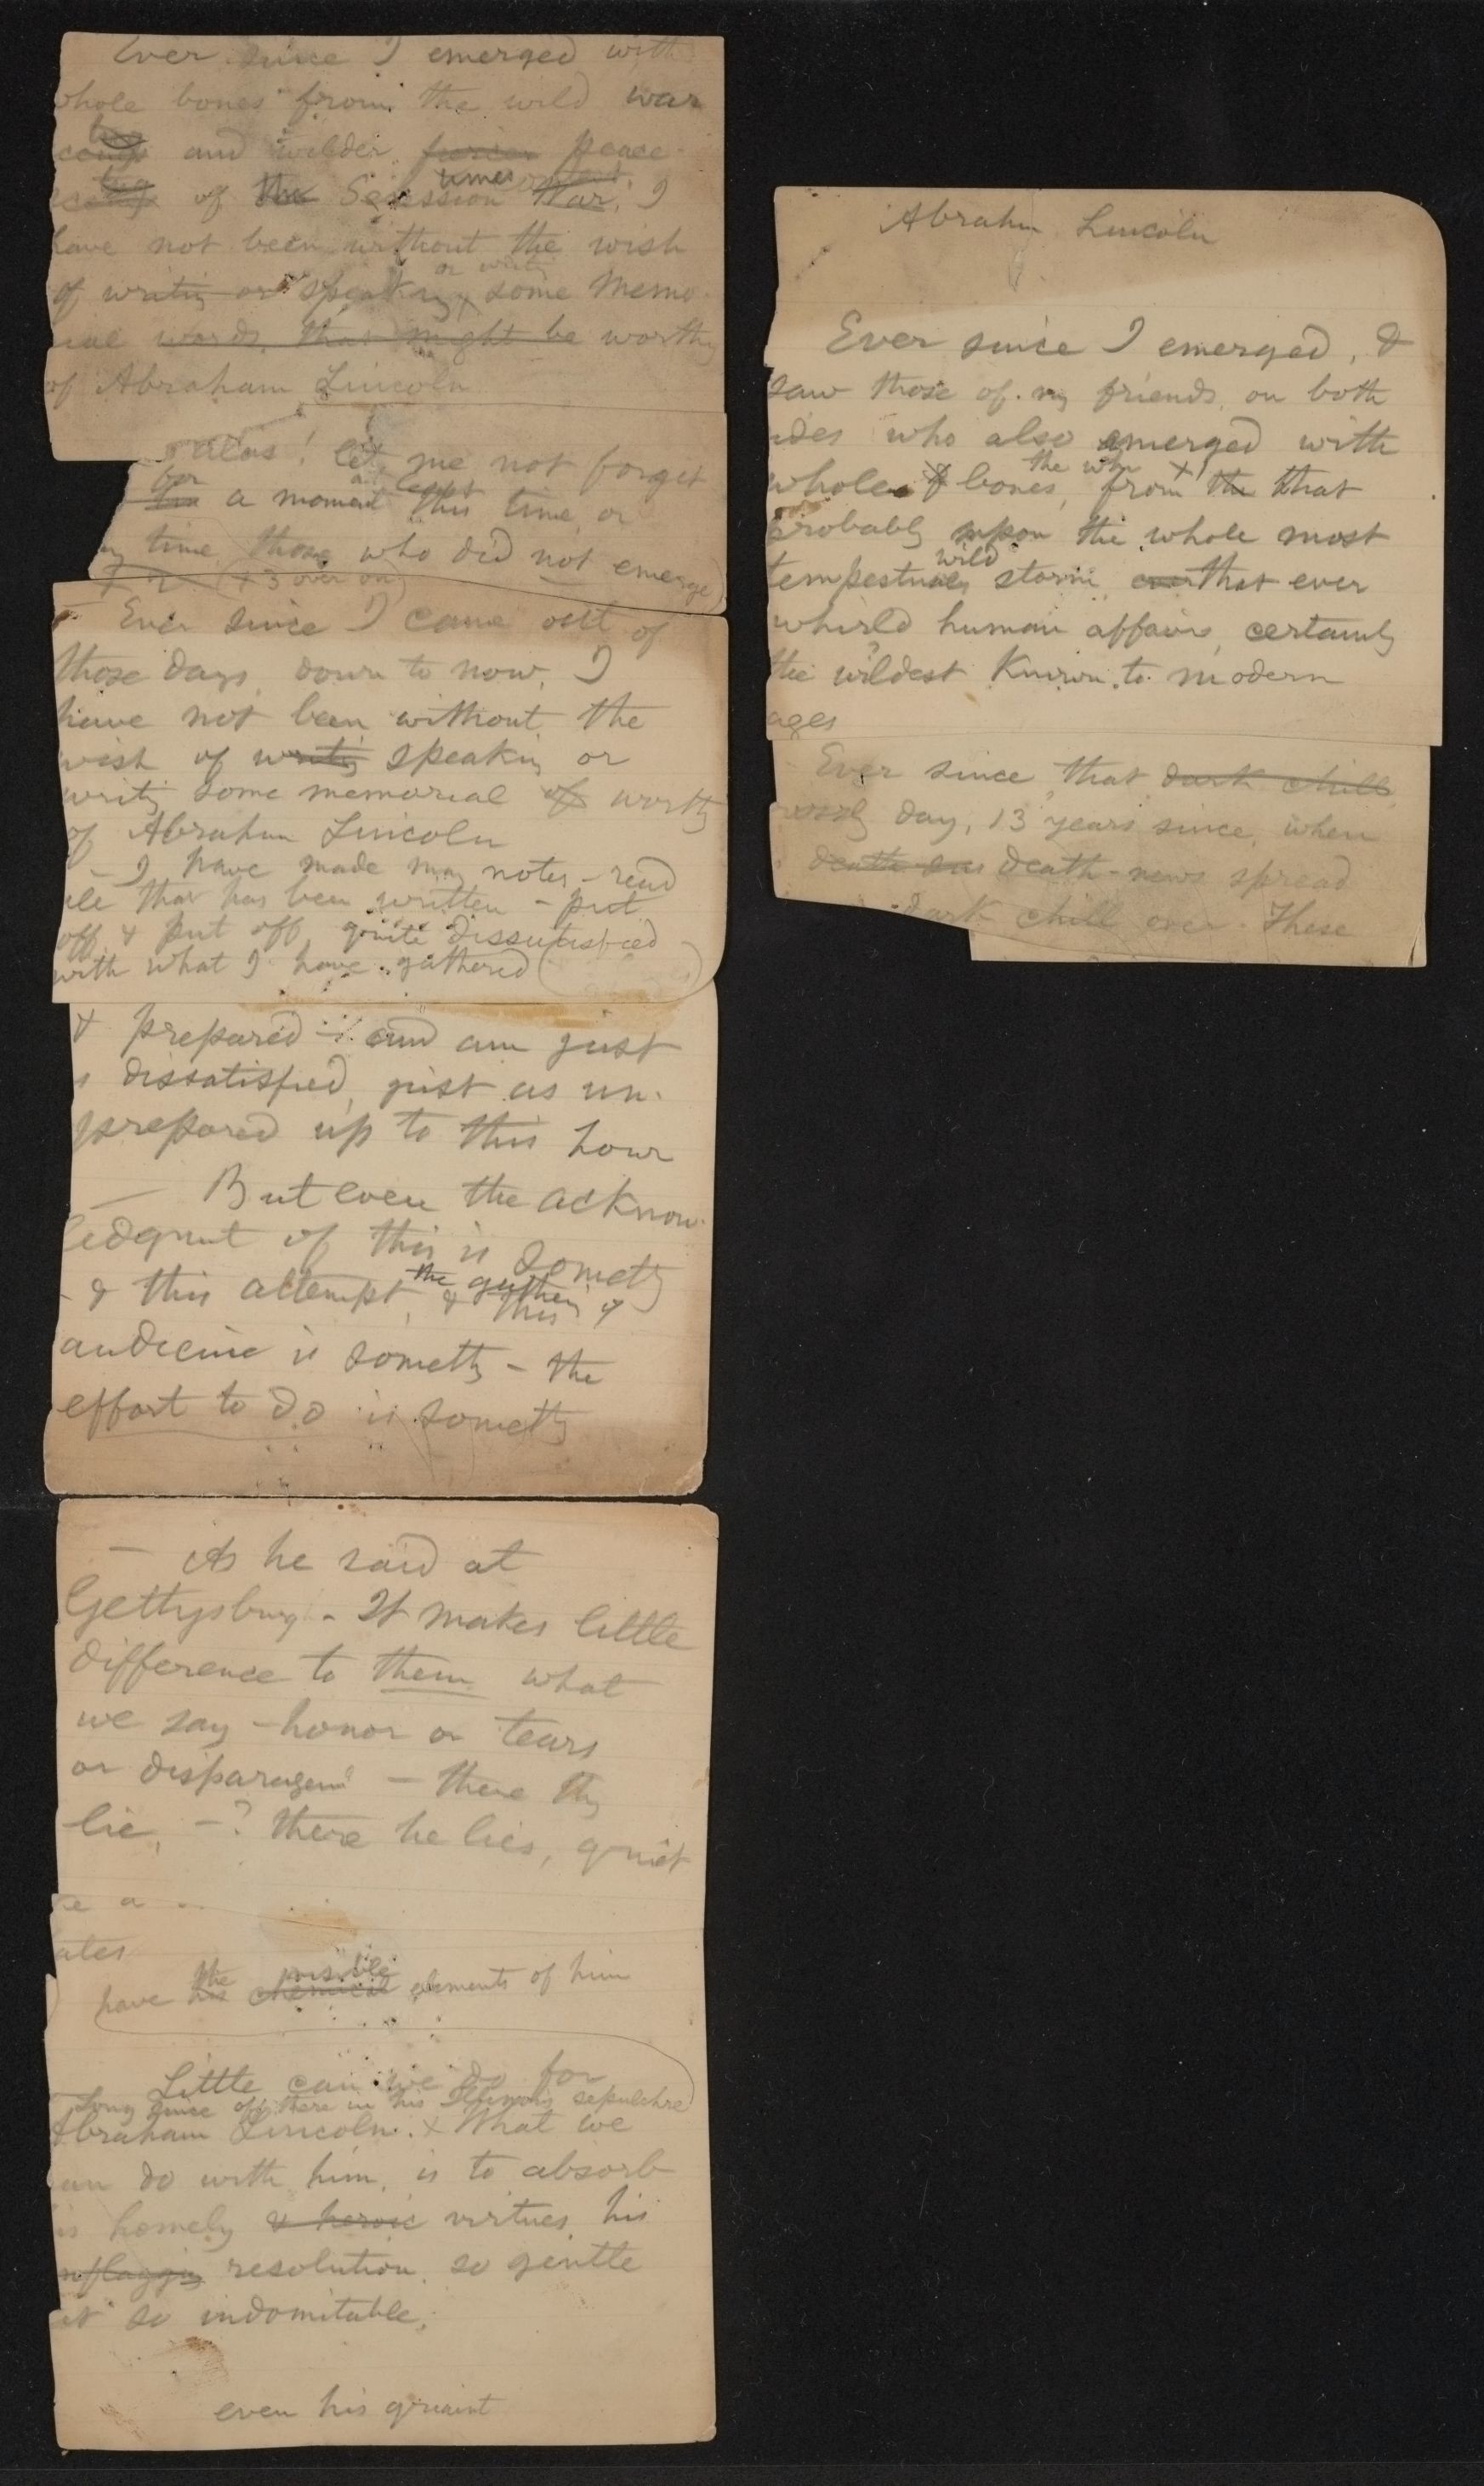 Ever since I emerged with
whole bones from the wild war
and wilder fiercer peace
times
of the Secession War, I
have not been without the wish
or writing
of writing or speaking some memo
rial words, that might be worthy
of Abraham Lincoln
alas! let me not forget
for at least
a moment this time or
time those who did not emerge
(+ 3 over on)
Ever since I came out of
those days, down to now, I
have not been without the
wish of writing speaking or
writing some memorial of worthy
of Abraham Lincoln
– I have made many notes – read
all that has been written – put
off & put off, quite dissatisfied
with what I have gathered
& prepared – and am just
s dissatisfied, just as un-
prepared up to this hour
— But even the acknow
ledgmt of this is somethg
the gatherig of
– & this attempt, & this
audience is somethg – the
effort to do is somethg
— As he said at
Gettysburg – It makes little
difference to them what
we say – honor or tears
or disparagemt – there they
lie, – ? there he lies, quiet
ke a
ates
the visible
have his chemical elements of him
Little can we do for
Long since off there in his Illinois sepulchre
Abraham Lincoln. x What we
an do with him, is to absorb
is homely & heroic virtues, his
nflagging resolution, so gentle
et so indomitable.
even his quaint
Abraham Lincoln
Ever since I emerged, &
saw those of my friends, on both
ides who also emerged with
the whr x
whole bones, from the that
probably upon the whole most
wild
tempestuous storm, ever that ever
whirld human affairs, certainly
the wildest known to modern
ages
Ever since that dark chill
day, 13 years since, when
death death-news spread
dark chill over these